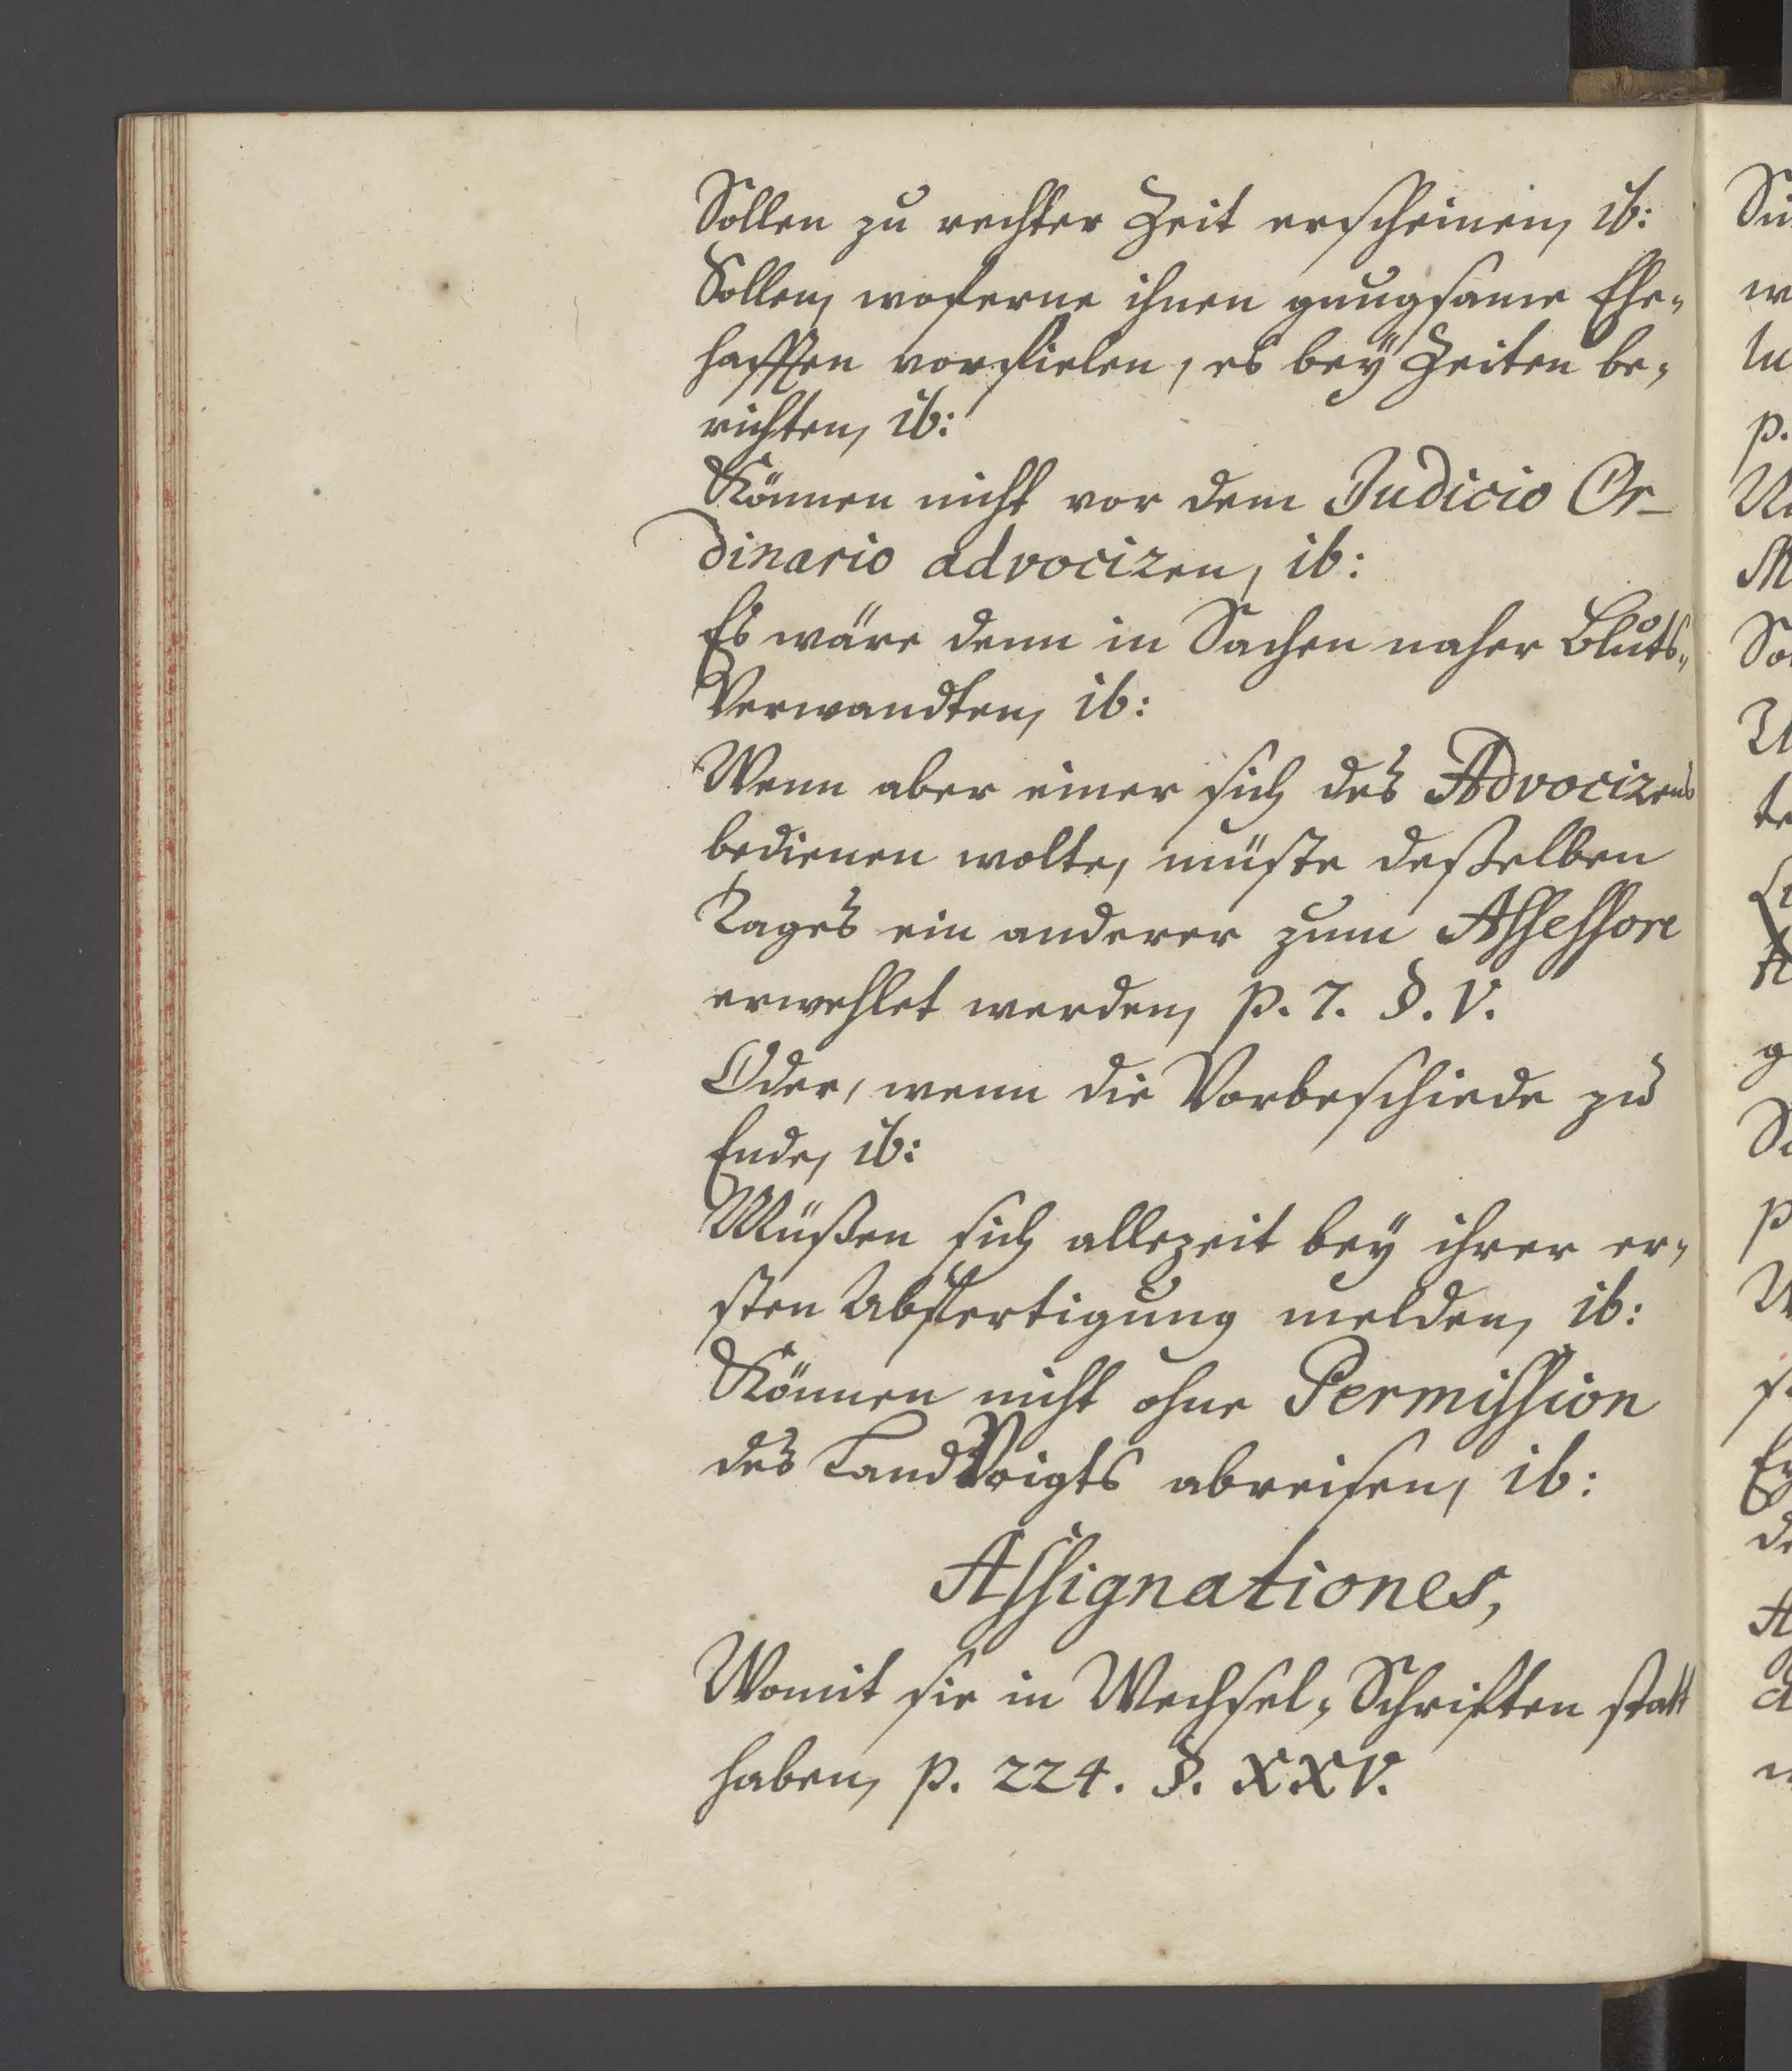 Sollen zu rechter Zeit erscheinen, ib:
Sollen, woferne ihnen gnugsame Ehe-
hafften vorfielen, es beÿ Zeiten be-
richten, ib:
Können nicht vor dem Judicio Or-
dinario advociren, ib:
Es wäre denn in Sachen naher Bluts-
Verwandten, ib:
Wenn aber einer sich des Advocirens
bedienen wolte, müste deßelben
Tages ein anderer zum Assessore
erwehlet werden, p. 7. §. V.
Oder, wenn die Vorbeschiede zu
Ende, ib:
Müßen sich allezeit beÿ ihrer er-
sten Abfertigung melden, ib:
Können nicht ohne Permission
des LandVoigts abreisen, ib:
Assignationes,
Womit sie in Wechsel-Schriften statt
haben, p. 224. §. XXV.